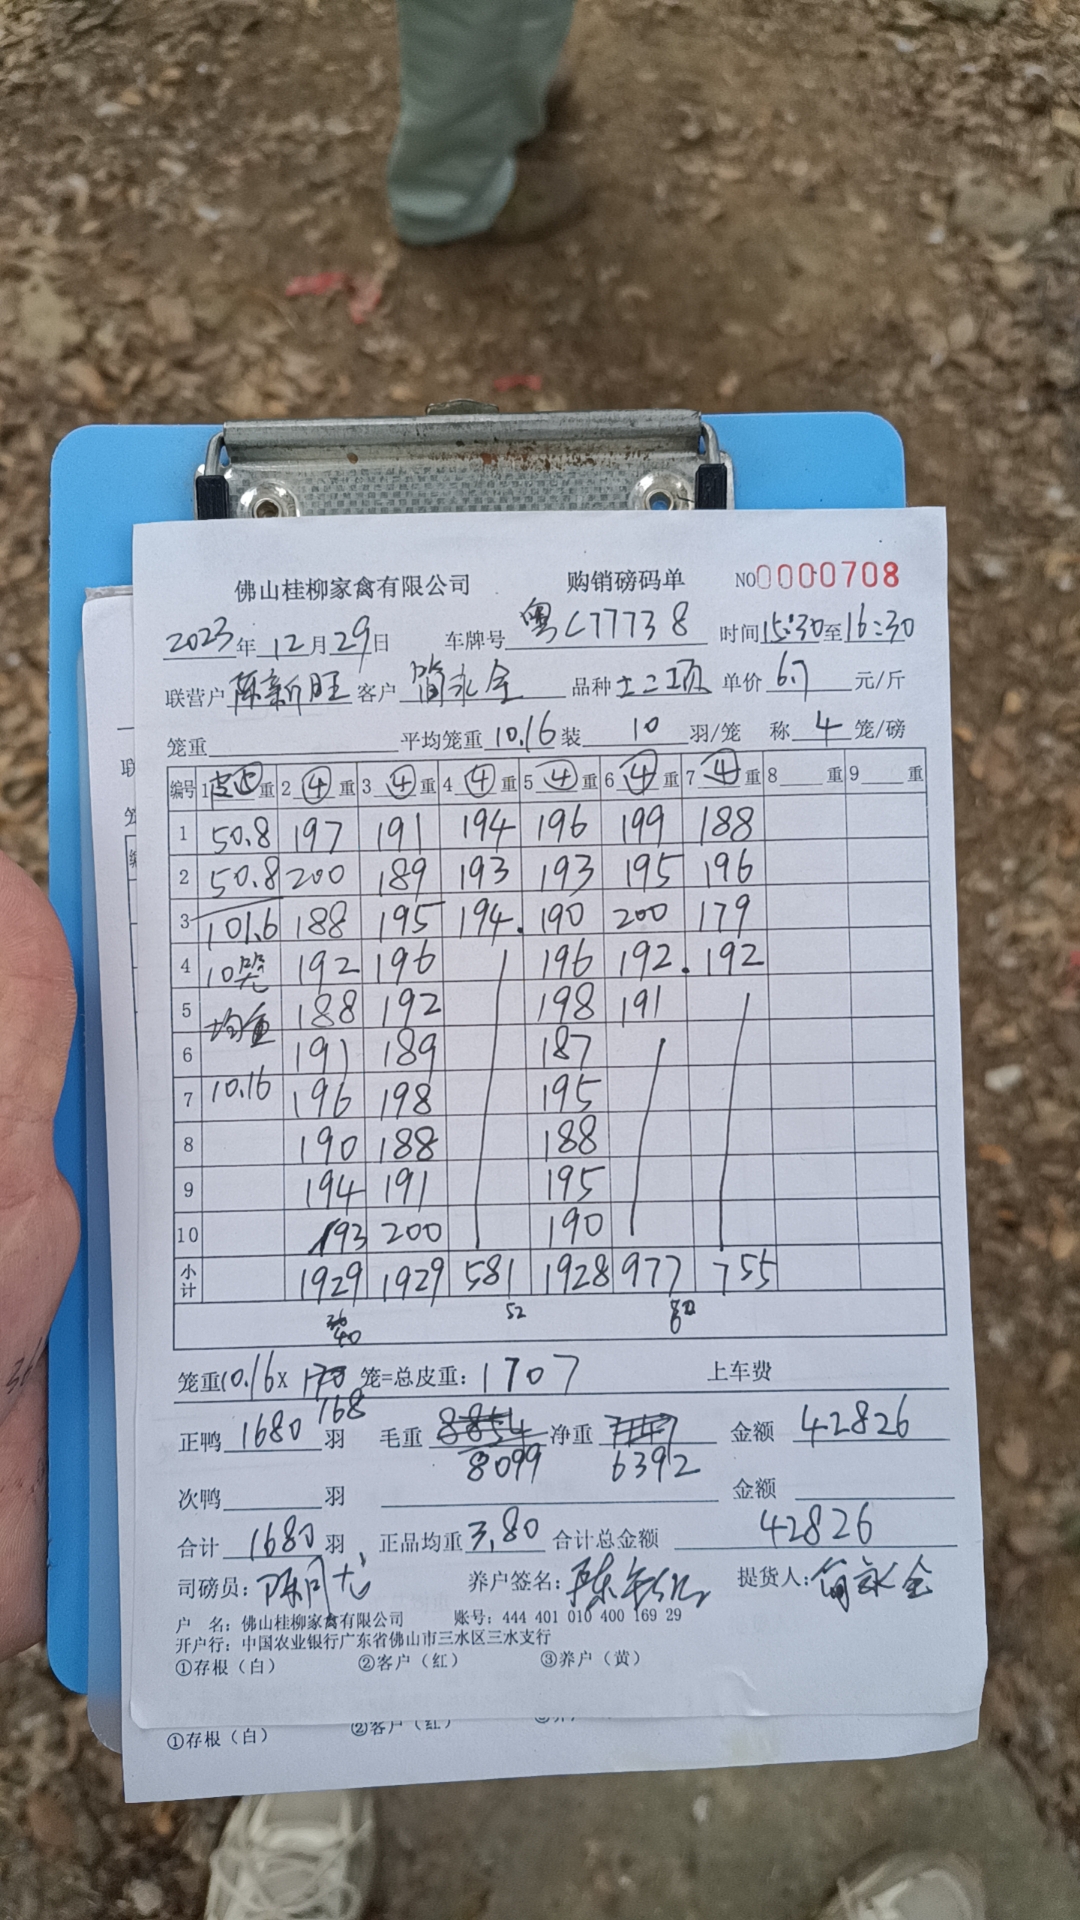 佛山桂柳家禽有限公司 购销磅码单 NO0000708
2023年12月29日 车牌号 粤C77738 时间15:30至16:30
联营户 陈新旺 客户 简永全 品种 土二项 单价 6.7 元/斤
笼重 平均笼重 10.16 装 10 羽/笼 称 4 笼/磅
编号 1 皮 重 2 ④ 重 3 ④ 重 4 ④ 重 5 ④ 重 6 ④ 重 7 ④ 重 8 重 9 重
1 50.8 197 191 194 196 199 188
2 50.8 200 189 193 193 195 196
3 101.6 188 195 194. 190 200 179
4 10笼 192 196 196 192. 192
5 均重 188 192 198 191
6 191 189 187
7 10.16 196 198 195
8 190 188 188
9 194 191 195
10 193 200 190
小计 1929 1929 581 1928 977 755
40 52
笼重10.16x 170 笼=总皮重：1707 上车费
168
正鸭 1680 羽 毛重 8854 净重 7147 金额 42826
8099 6392
次鸭 羽 金额
合计 1680 羽 正品均重 3.80 合计总金额 42826
司磅员： 养户签名： 提货人：简永全
户 名：佛山桂柳家禽有限公司 账号：444 401 010 400 169 29
开户行：中国农业银行广东省佛山市三水区三水支行
①存根（白） ②客户（红） ③养户（黄）
①存根（白） ②客户（红）